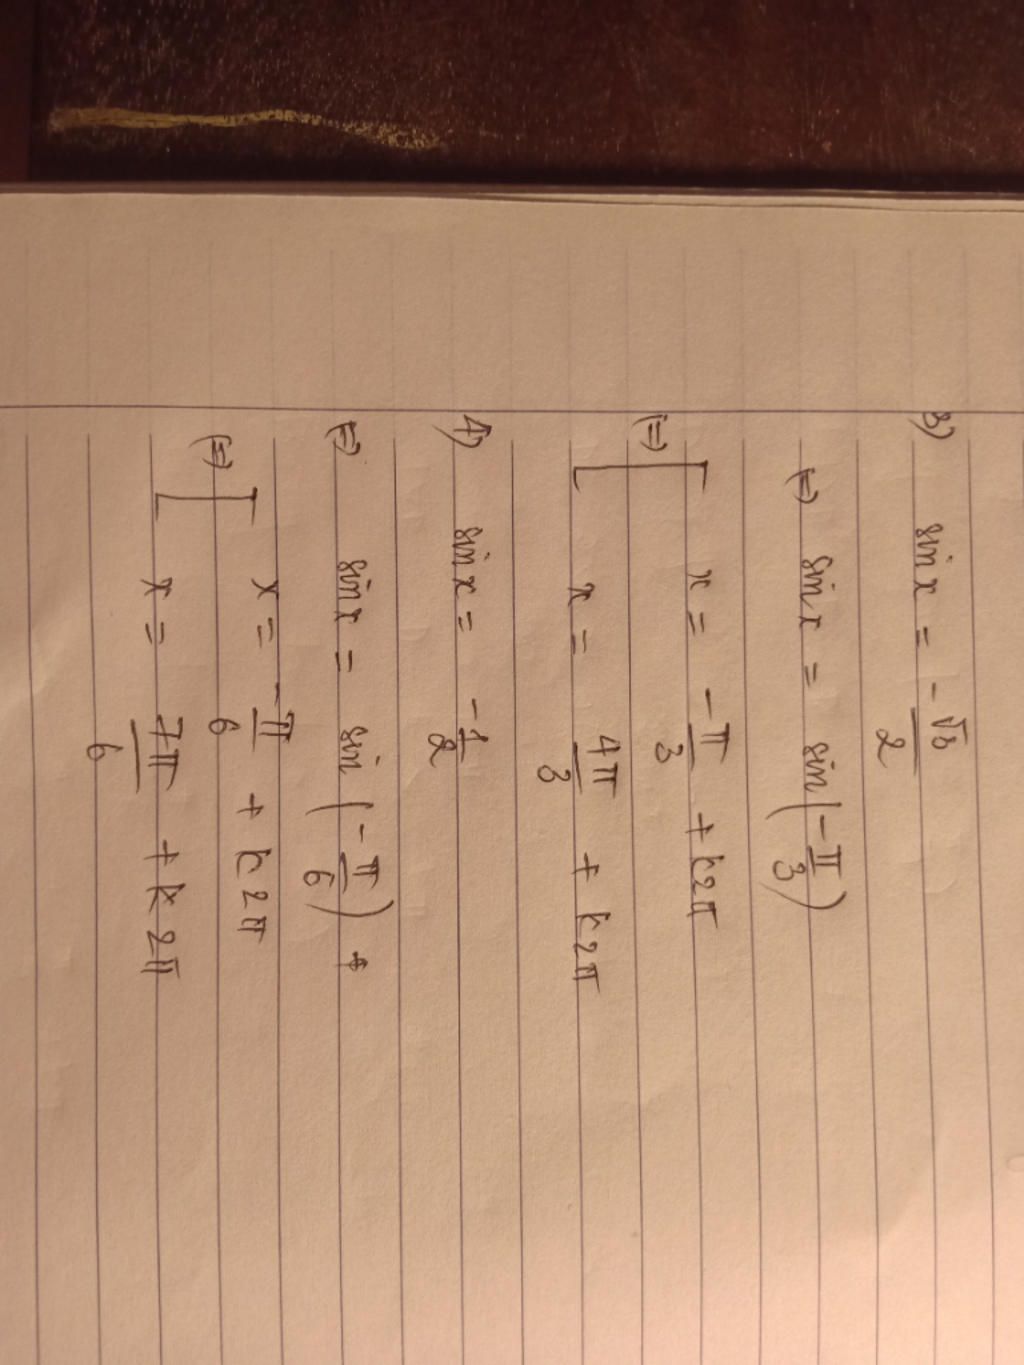 3) sin x = -√3/2
⇔ sin x = sin(-π/3)
⇔ [ x = -π/3 + k2π
x = 4π/3 + k2π
4) sin x = -1/2
⇔ sin x = sin(-π/6) +
⇔ [ x = -π/6 + k2π
x = 7π/6 + k2π